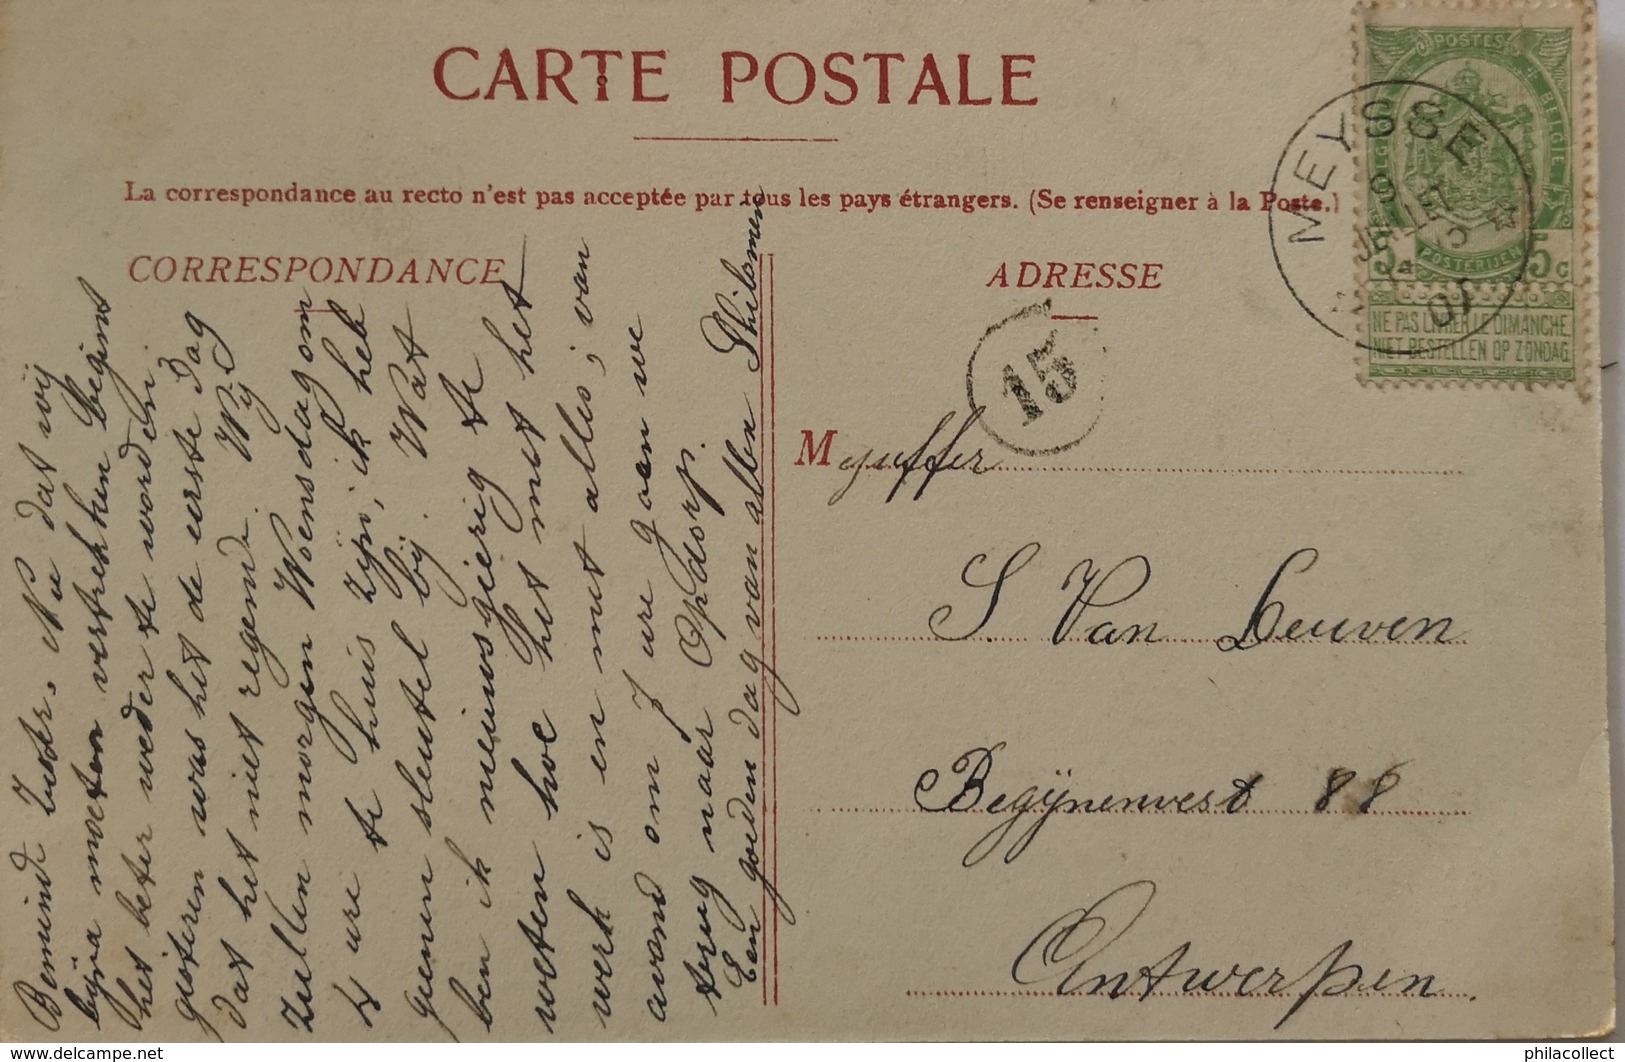 CARTE POSTALE
La correspondance au recto n'est pas acceptée par tous les pays étrangers. (Se renseigner à la Poste.)
CORRESPONDANCE
Beminde Zuster. Nu dat wij
bijna moeten vertrekken begint
het beter weder te worden.
gisteren was het de eerste dag
dat het niet regende. Wij
zullen morgen Woensdag om
4 ure te huis zijn, ik heb
geenen sleutel bij. Wat
ben ik nieuwsgierig te
weten hoe het met het
werk is en met alles, van
avond om 7 ure gaan we
terug naar Opdorp.
Een goeden dag van alle Philomen
ADRESSE
15
Mejuffer
S. Van Leuven
Begijnenvest 88
Antwerpen
MEYSSE
9
JUILLET
07
POSTES
BELGIE
POSTERIJEN
5 5c
NE PAS LIVRER LE DIMANCHE
NIET BESTELLEN OP ZONDAG
http://www.delcampe.net
philacollect